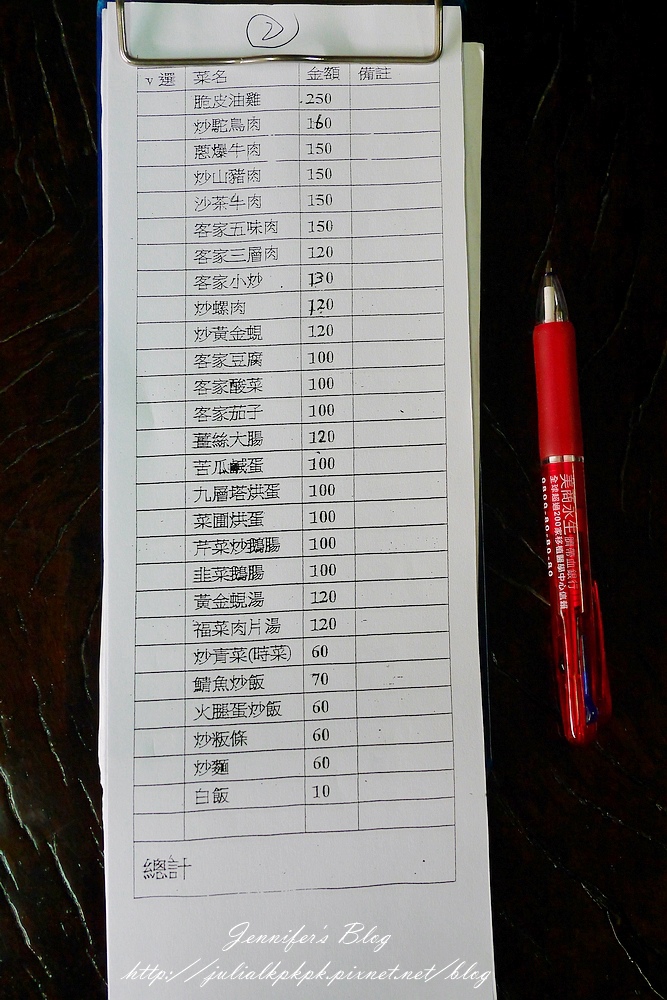 2
v 選 菜名 金額 備註
脆皮油雞 250
炒駝鳥肉 160
蔥爆牛肉 150
炒山豬肉 150
沙茶牛肉 150
客家五味肉 150
客家三層肉 120
客家小炒 130
炒螺肉 120
炒黃金蜆 120
客家豆腐 100
客家酸菜 100
客家茄子 100
薑絲大腸 120
苦瓜鹹蛋 100
九層塔烘蛋 100
菜圃烘蛋 100
芹菜炒鵝腸 100
韭菜鵝腸 100
黃金蜆湯 120
福菜肉片湯 120
炒青菜(時菜) 60
鯖魚炒飯 70
火腿蛋炒飯 60
炒粄條 60
炒麵 60
白飯 10
總計
美商永生臍帶血銀行
全球超過200家移植醫學中心信賴
0800-80-80-80
Jennifer's Blog
http://julialkpkpk.pixnet.net/blog